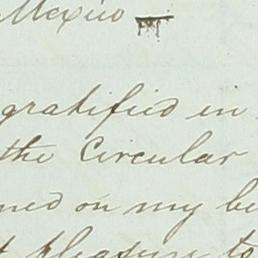 Mexico
gratified in
the Circular
ned on my be
t pleasure to